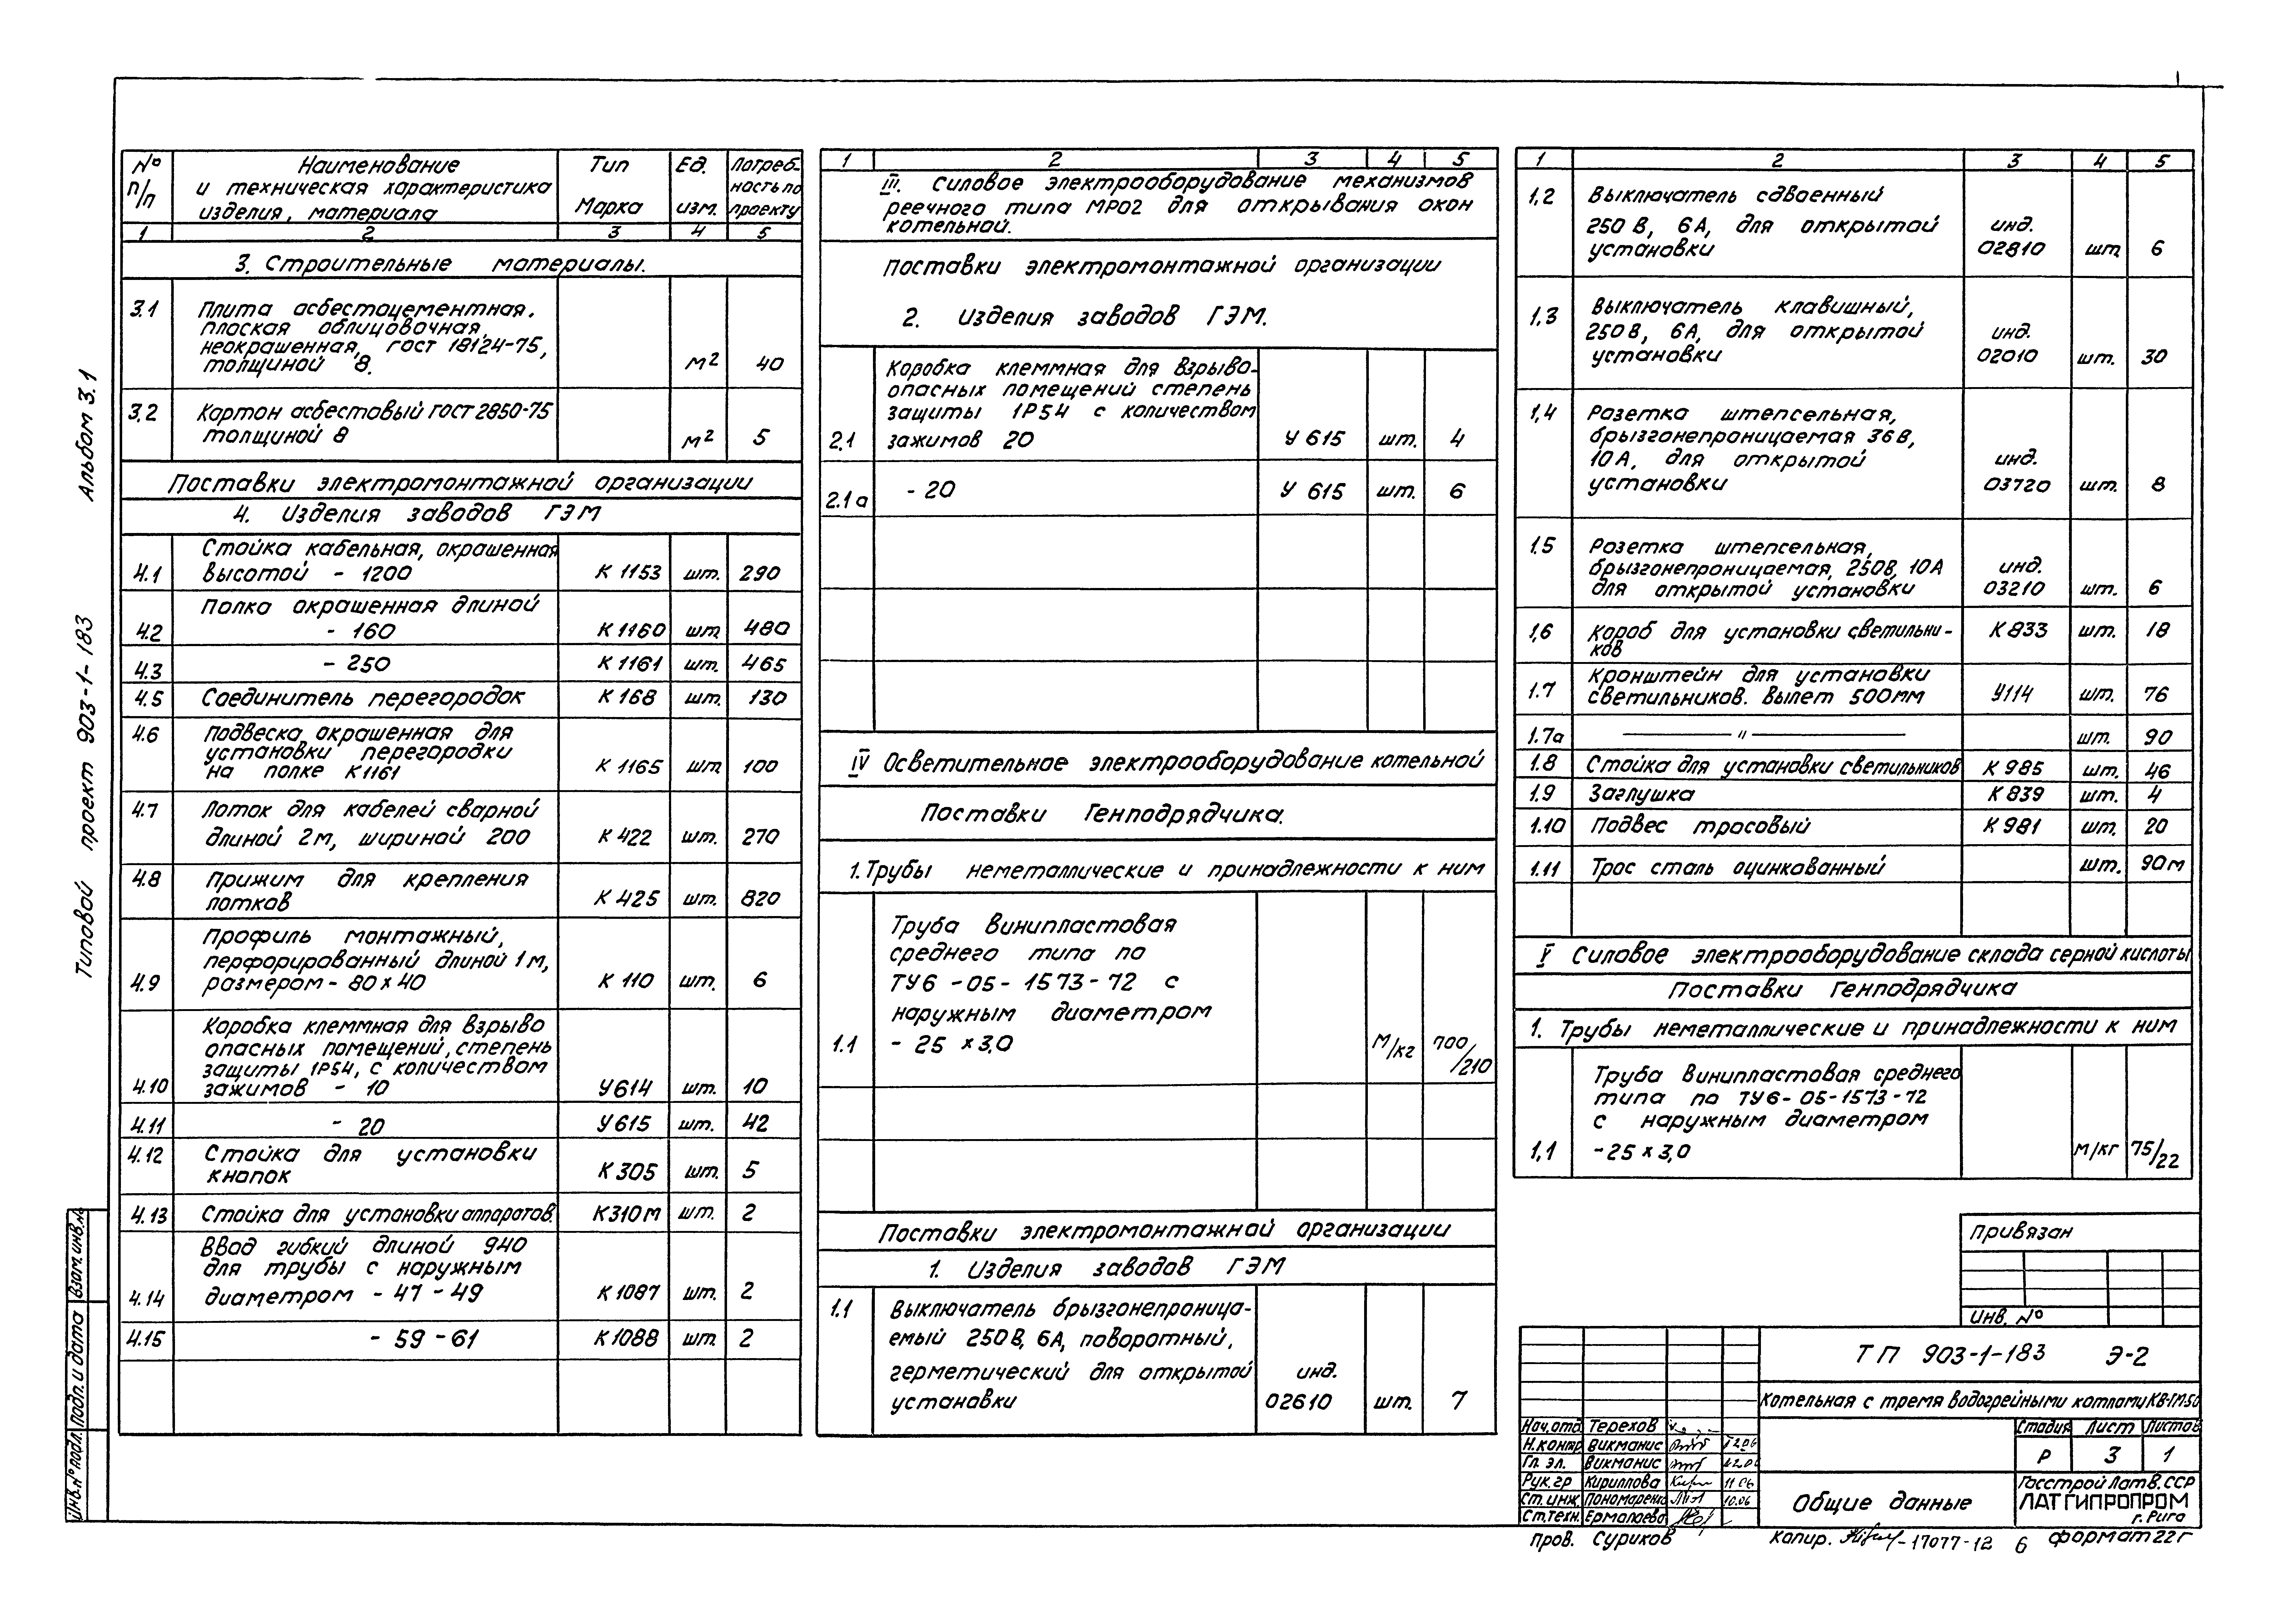 Альбом 3.1
Типовой проект 903-1-183
Взам. инв. №
Подп. и дата
Инв. № подл.
№ п/п
Наименование и техническая характеристика изделия, материала
Тип Марка
Ед. изм.
Потреб-ность по проекту
1 2 3 4 5
3. Строительные материалы.
3.1 Плита асбестоцементная,
плоская облицовочная,
неокрашенная, ГОСТ 18124-75,
толщиной 8. м² 40
3.2 Картон асбестовый ГОСТ 2850-75
толщиной 8 м² 5
Поставки электромонтажной организации
4. Изделия заводов ГЭМ
Стойка кабельная, окрашенная
4.1 высотой - 1200 К 1153 шт. 290
Полка окрашенная длиной
4.2 - 160 К 1160 шт. 480
4.3 - 250 К 1161 шт. 465
4.5 Соединитель перегородок К 168 шт. 130
4.6 Подвеска окрашенная для
установки перегородки
на полке К 1161 К 1165 шт. 100
4.7 Лоток для кабелей сварной
длиной 2м, шириной 200 К 422 шт. 270
4.8 Прижим для крепления
лотков К 425 шт. 820
Профиль монтажный,
перфорированный длиной 1м,
4.9 размером - 80 х 40 К 110 шт. 6
Коробка клеммная для взрыво
опасных помещений, степень
защиты 1Р54, с количеством
4.10 зажимов - 10 У614 шт. 10
4.11 - 20 У615 шт. 42
4.12 Стойка для установки
кнопок К 305 шт. 5
4.13 Стойка для установки аппаратов. К310м шт. 2
Ввод гибкий длиной 940
для трубы с наружным
4.14 диаметром - 47 - 49 К 1087 шт. 2
4.15 - 59 - 61 К 1088 шт. 2
1 2 3 4 5
III. Силовое электрооборудование механизмов
реечного типа МР02 для открывания окон
котельной.
Поставки электромонтажной организации
2. Изделия заводов ГЭМ.
Коробка клеммная для взрыво-
опасных помещений степень
защиты 1Р54 с количеством
2.1 зажимов 20 У 615 шт. 4
2.1а - 20 У 615 шт. 6
IV Осветительное электрооборудование котельной
Поставки Генподрядчика.
1. Трубы неметаллические и принадлежности к ним
Труба винипластовая
среднего типа по
ТУ6 -05- 1573-72 с
наружным диаметром
1.1 - 25 х 3,0 м/кг 700/210
Поставки электромонтажной организации
1. Изделия заводов ГЭМ
1.1 Выключатель брызгонепроница-
емый 250В, 6А, поворотный,
герметический для открытой инд.
установки 02610 шт. 7
1 2 3 4 5
1,2 Выключатель сдвоенный
250 В, 6А, для открытой инд.
установки 02810 шт. 6
1,3 Выключатель клавишный,
250 В, 6А, для открытой инд.
установки 02010 шт. 30
1,4 Розетка штепсельная,
брызгонепроницаемая 36В,
10А, для открытой инд.
установки 03720 шт. 8
1.5 Розетка штепсельная,
брызгонепроницаемая, 250В, 10А инд.
для открытой установки 03210 шт. 6
1,6 Короб для установки светильни- К 833 шт. 18
ков
Кронштейн для установки
1.7 светильников. Вылет 500мм У114 шт. 76
1.7а —— " —— шт. 90
1.8 Стойка для установки светильников К 985 шт. 46
1.9 Заглушка К 839 шт. 4
1.10 Подвес тросовый К 981 шт. 20
1.11 Трос сталь оцинкованный шт. 90м
V Силовое электрооборудование склада серной кислоты
Поставки Генподрядчика
1. Трубы неметаллические и принадлежности к ним
Труба винипластовая среднего
типа по ТУ6-05-1573-72
с наружным диаметром
1,1 - 25 х 3,0 м/кг 75/22
Привязан
Инв. №
ТП 903-1-183 Э-2
Котельная с тремя водогрейными котлами КВ-ГМ50
Стадия Лист Листов
Р 3 1
Общие данные
Госстрой Латв. ССР
ЛАТГИПРОПРОМ
г. Рига
Нач. отд. Терехов
Н. контр Викманис
Гл. эл. Викманис
Рук. гр Кириллова 11 06
Ст. инж. Пономаренко 10.06
Ст. техн. Ермолаева
Пров. Суриков
Копир. -17077-12 6 формат 22г